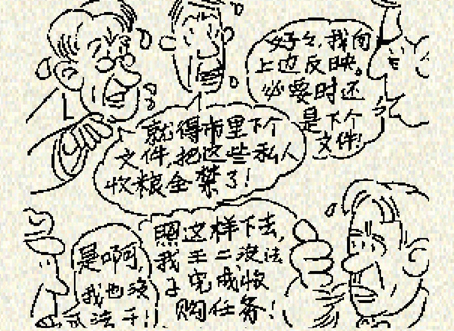 好々,我向
上边反映。
必要时还
是下个
文件!
就得市里下个
文件,把这些私人
收粮全禁了!
是啊,
我也没
法干!
照这样下去,
我王二没法
子完成收
购任务!